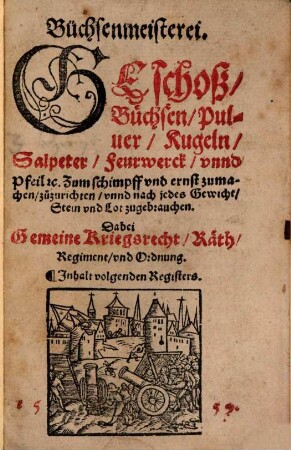 Büchsenmeisterei.
GEschoß/
Büchsen/Pul-
uer/Kugeln/
Salpeter/Feurwerck/vnnd
Pfeil ꝛc. Zum schimpff vnd ernst zuma-
chen/zůzurichten/vnnd nach jedes Gewicht/
Stein vnd Lot zugebrauchen.
Dabei
Gemeine Kriegsrecht/Räth/
Regiment/vnd Ordnung.
¶ Inhalt volgenden Registers.